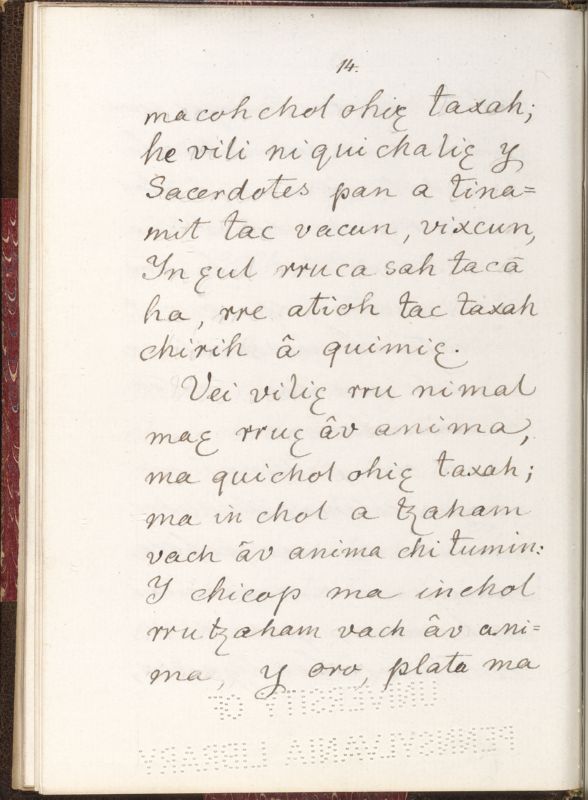 14.
macoh chol ohiꜫ taxah;
he vili ni qui chaliꜫ y
Sacerdotes pan a tina=
mit tac vacun, vixcun,
Yn ꜫul rruca sah tacā
ha, rre atioh tac taxah
chirih â quimiꜫ.
Vei viliꜫ rru nimal
maꜫ rruꜫ âv anima,
ma quichol ohiꜫ taxah;
ma in chol a tꜫaham
vach āv anima chi tumin:
Y chicop ma inchol
rrutꜫaham vach âv ani=
ma, y oro, plata ma
UNIVERSITY OF
PENNSYLVANIA LIBRARY